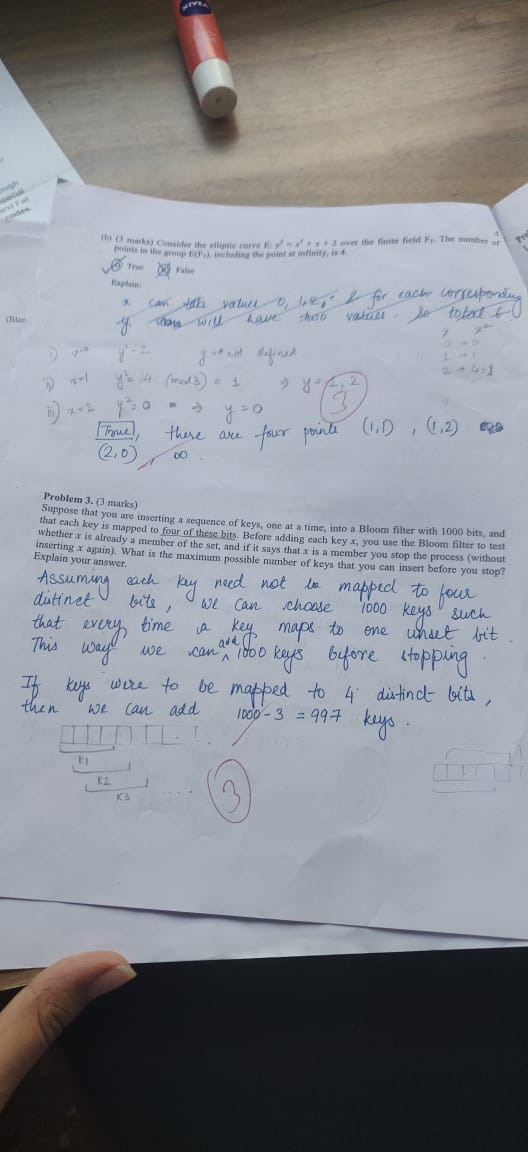 NIVEA
ough
and Fail
codes
(Blue
4
Pro
(b) (3 marks) Consider the elliptic curve E: y² = x³ + x + 2 over the finite field F₃. The number of
points in the group E(F₃), including the point at infinity, is 4.
True False
Explain:
x can take values 0, 1, 2, & for each corresponding
y there will have two values. So total 6
i) x=0 y²=2 y = not defined
ii) x=1 y²= 4 (mod 3) = 1 ⇒ y=1, 2
iii) x=2 y²= 0 ⇒ y=0
x x²
0 → 0
1 → 1
2 → 4=1
3
True, there are four points (1,1) , (1,2)
(2,0), ∞
Problem 3. (3 marks)
Suppose that you are inserting a sequence of keys, one at a time, into a Bloom filter with 1000 bits, and
that each key is mapped to four of these bits. Before adding each key x, you use the Bloom filter to test
whether x is already a member of the set, and if it says that x is a member you stop the process (without
inserting x again). What is the maximum possible number of keys that you can insert before you stop?
Explain your answer.
Assuming each key need not be mapped to four
distinct bits, we can choose 1000 keys such
that every time a key maps to one unset bit.
This way we can add 1000 keys before stopping.
If keys were to be mapped to 4 distinct bits,
then we can add 1000-3 = 997 keys.
K1
K2
K3 ....
3